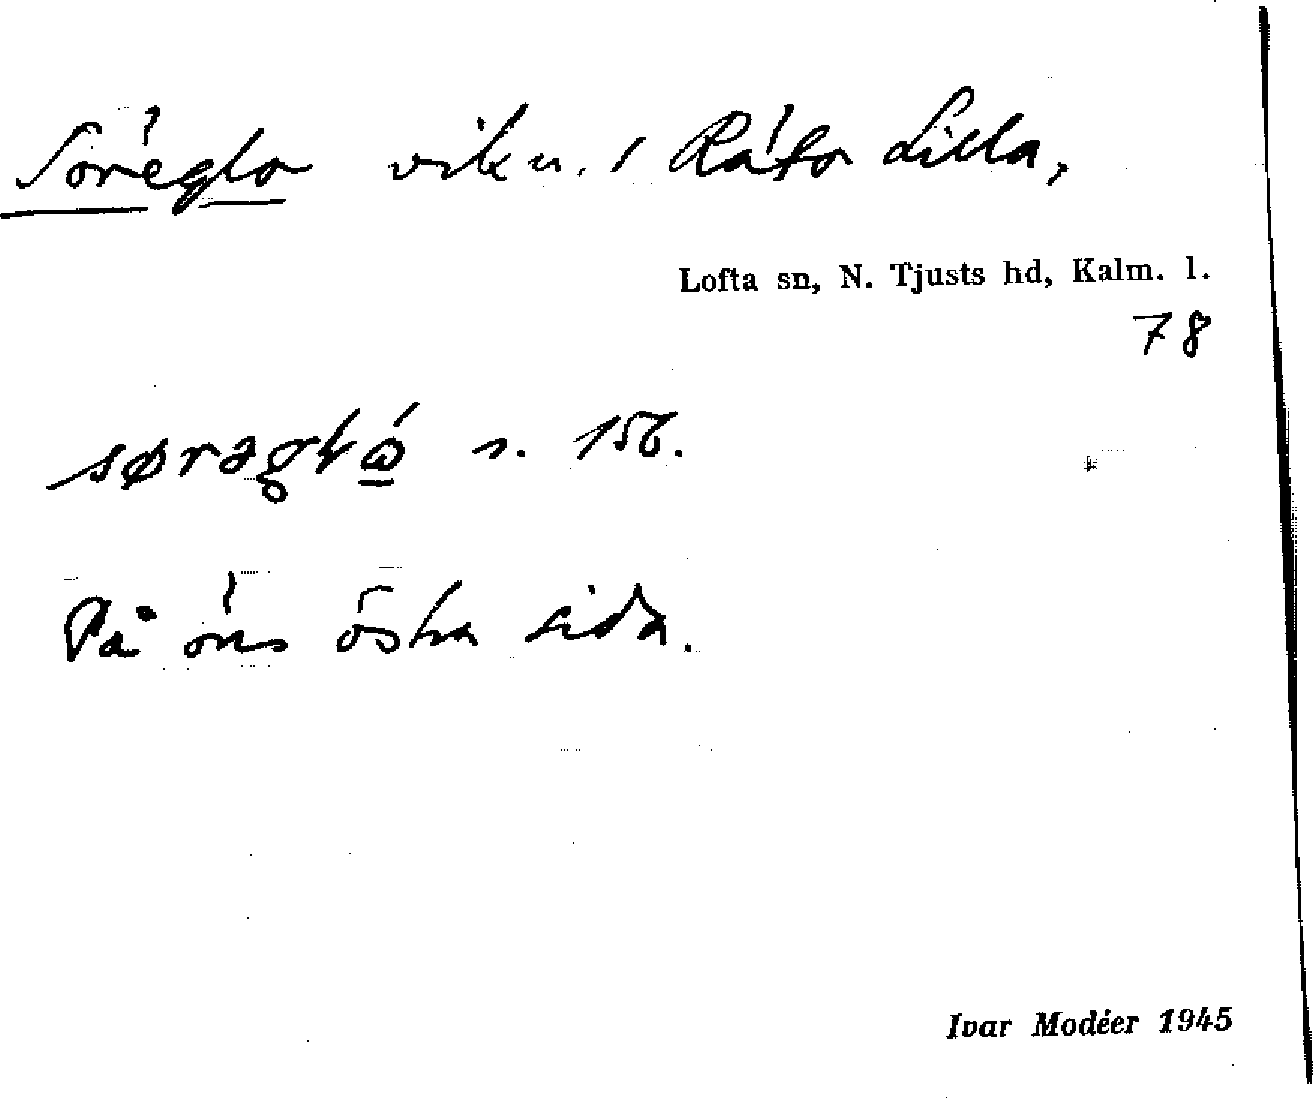 Söreglo vik v. / Råtö Lilla,
Lofta sn, N. Tjusts hd, Kalm. l.
78
s. 156.
På öns östra sida.
Ivar Modéer 1945